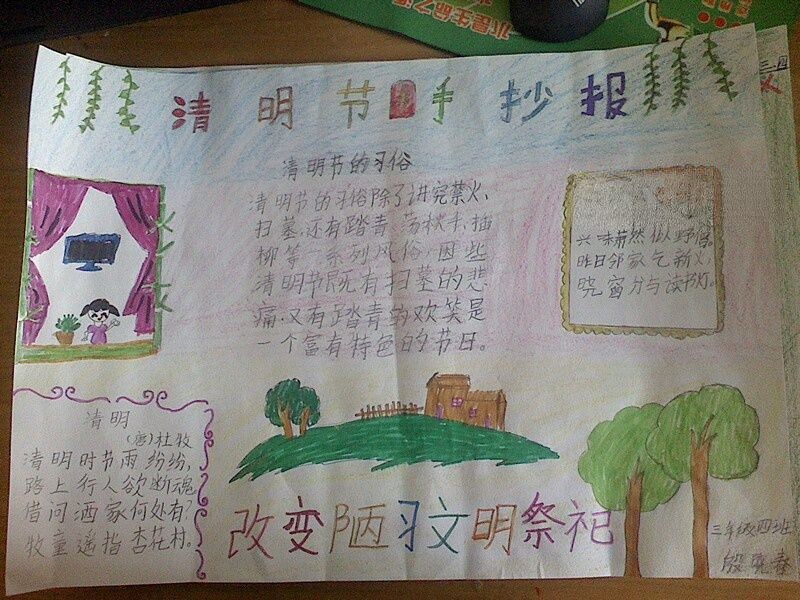 水是生命之源
清明节手抄报
清明节的习俗
清明节的习俗除了讲究禁火、
扫墓,还有踏青、荡秋千、插
柳等一系列风俗,因些
清明节既有扫墓的悲
痛,又有踏青的欢笑是
一个富有特色的节日。
兴味萧然似野僧。
昨日邻家乞新火,
晓窗分与读书灯。
清明
(唐)杜牧
清明时节雨纷纷,
路上行人欲断魂
借问酒家何处有?
牧童遥指杏花村。
改变陋习文明祭祀
三年级四班